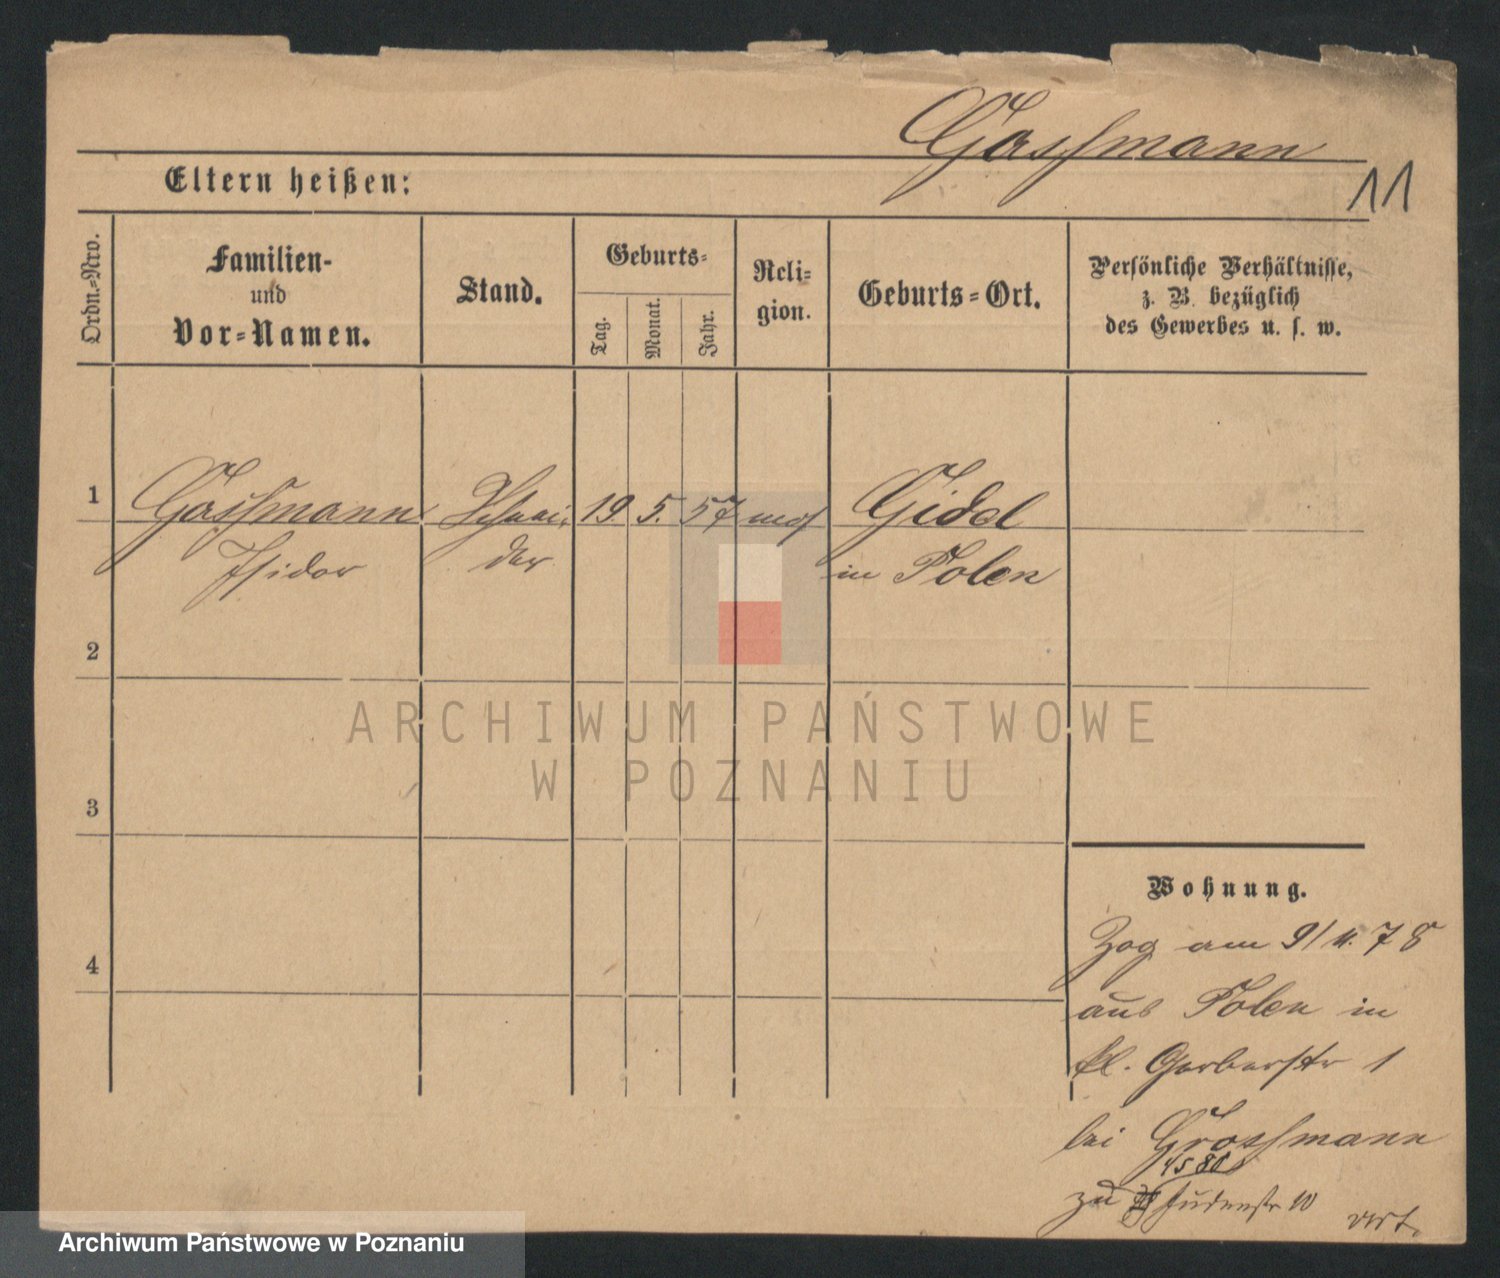 Gassmann
11
Eltern heißen:
Ordn.-Nro.
Familien-
und
Vor-Namen.
Stand.
Geburts-
Tag.
Monat.
Jahr.
Reli-
gion.
Geburts-Ort.
Persönliche Verhältnisse,
z. B. bezüglich
des Gewerbes u. s. w.
1
Gassmann Schnei- 19. 5. 57 mos Gidel
Isidor der in Polen
2
3
4
Wohnung.
Zog am 9/11. 78
aus Polen in
kl. Gerberstr 1
bei Grossmann
4/5 80
zu Judenstr 10
ARCHIWUM PAŃSTWOWE
W POZNANIU
Archiwum Państwowe w Poznaniu